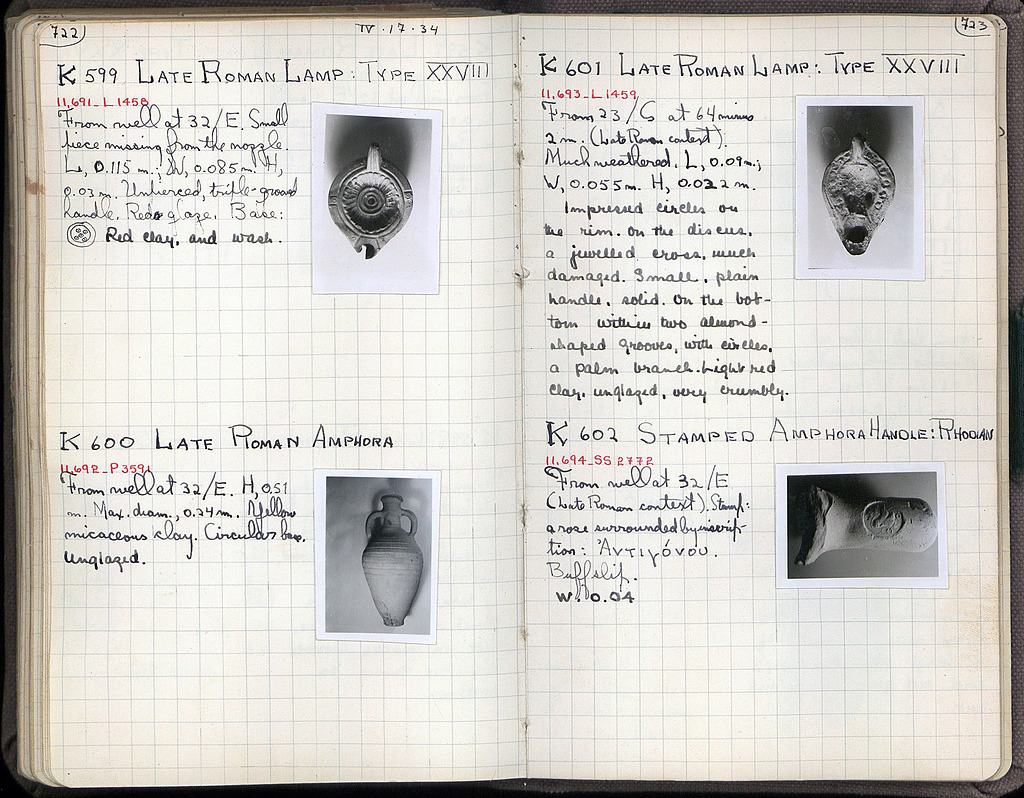 722
IV·17·34
K 599 LATE ROMAN LAMP: TYPE XXVIII
11,691_L 1458
From well at 32/E. Small
piece missing from the nozzle.
L, 0.115 m.; W, 0.085 m. H,
0.03 m. Unpierced, triple-grooved
handle. Red glaze. Base:
Red clay, and wash.
K 600 LATE ROMAN AMPHORA
11,692_P 3591
From well at 32/E. H, 0.51
m. Max. diam., 0.24 m. Yellow
micaceous clay. Circular base.
Unglazed.
723
K 601 LATE ROMAN LAMP: TYPE XXVIII
11,693_L 1459
From 23/S at 64 minus
2 m. (Late Roman context).
Much weathered. L, 0.09 m.;
W, 0.055 m. H, 0.022 m.
Impressed circles on
the rim. On the discus,
a jewelled cross, much
damaged. Small, plain
handle, solid. On the bot-
tom within two almond-
shaped grooves, with circles,
a palm branch. Light red
clay, unglazed, very crumbly.
K 602 STAMPED AMPHORA HANDLE: RHODIAN
11,694_SS 2772
From well at 32/E
(Late Roman context). Stamp:
a rose surrounded by inscrip-
tion: Ἀντιγόνου.
Buff slip.
W. 0.04